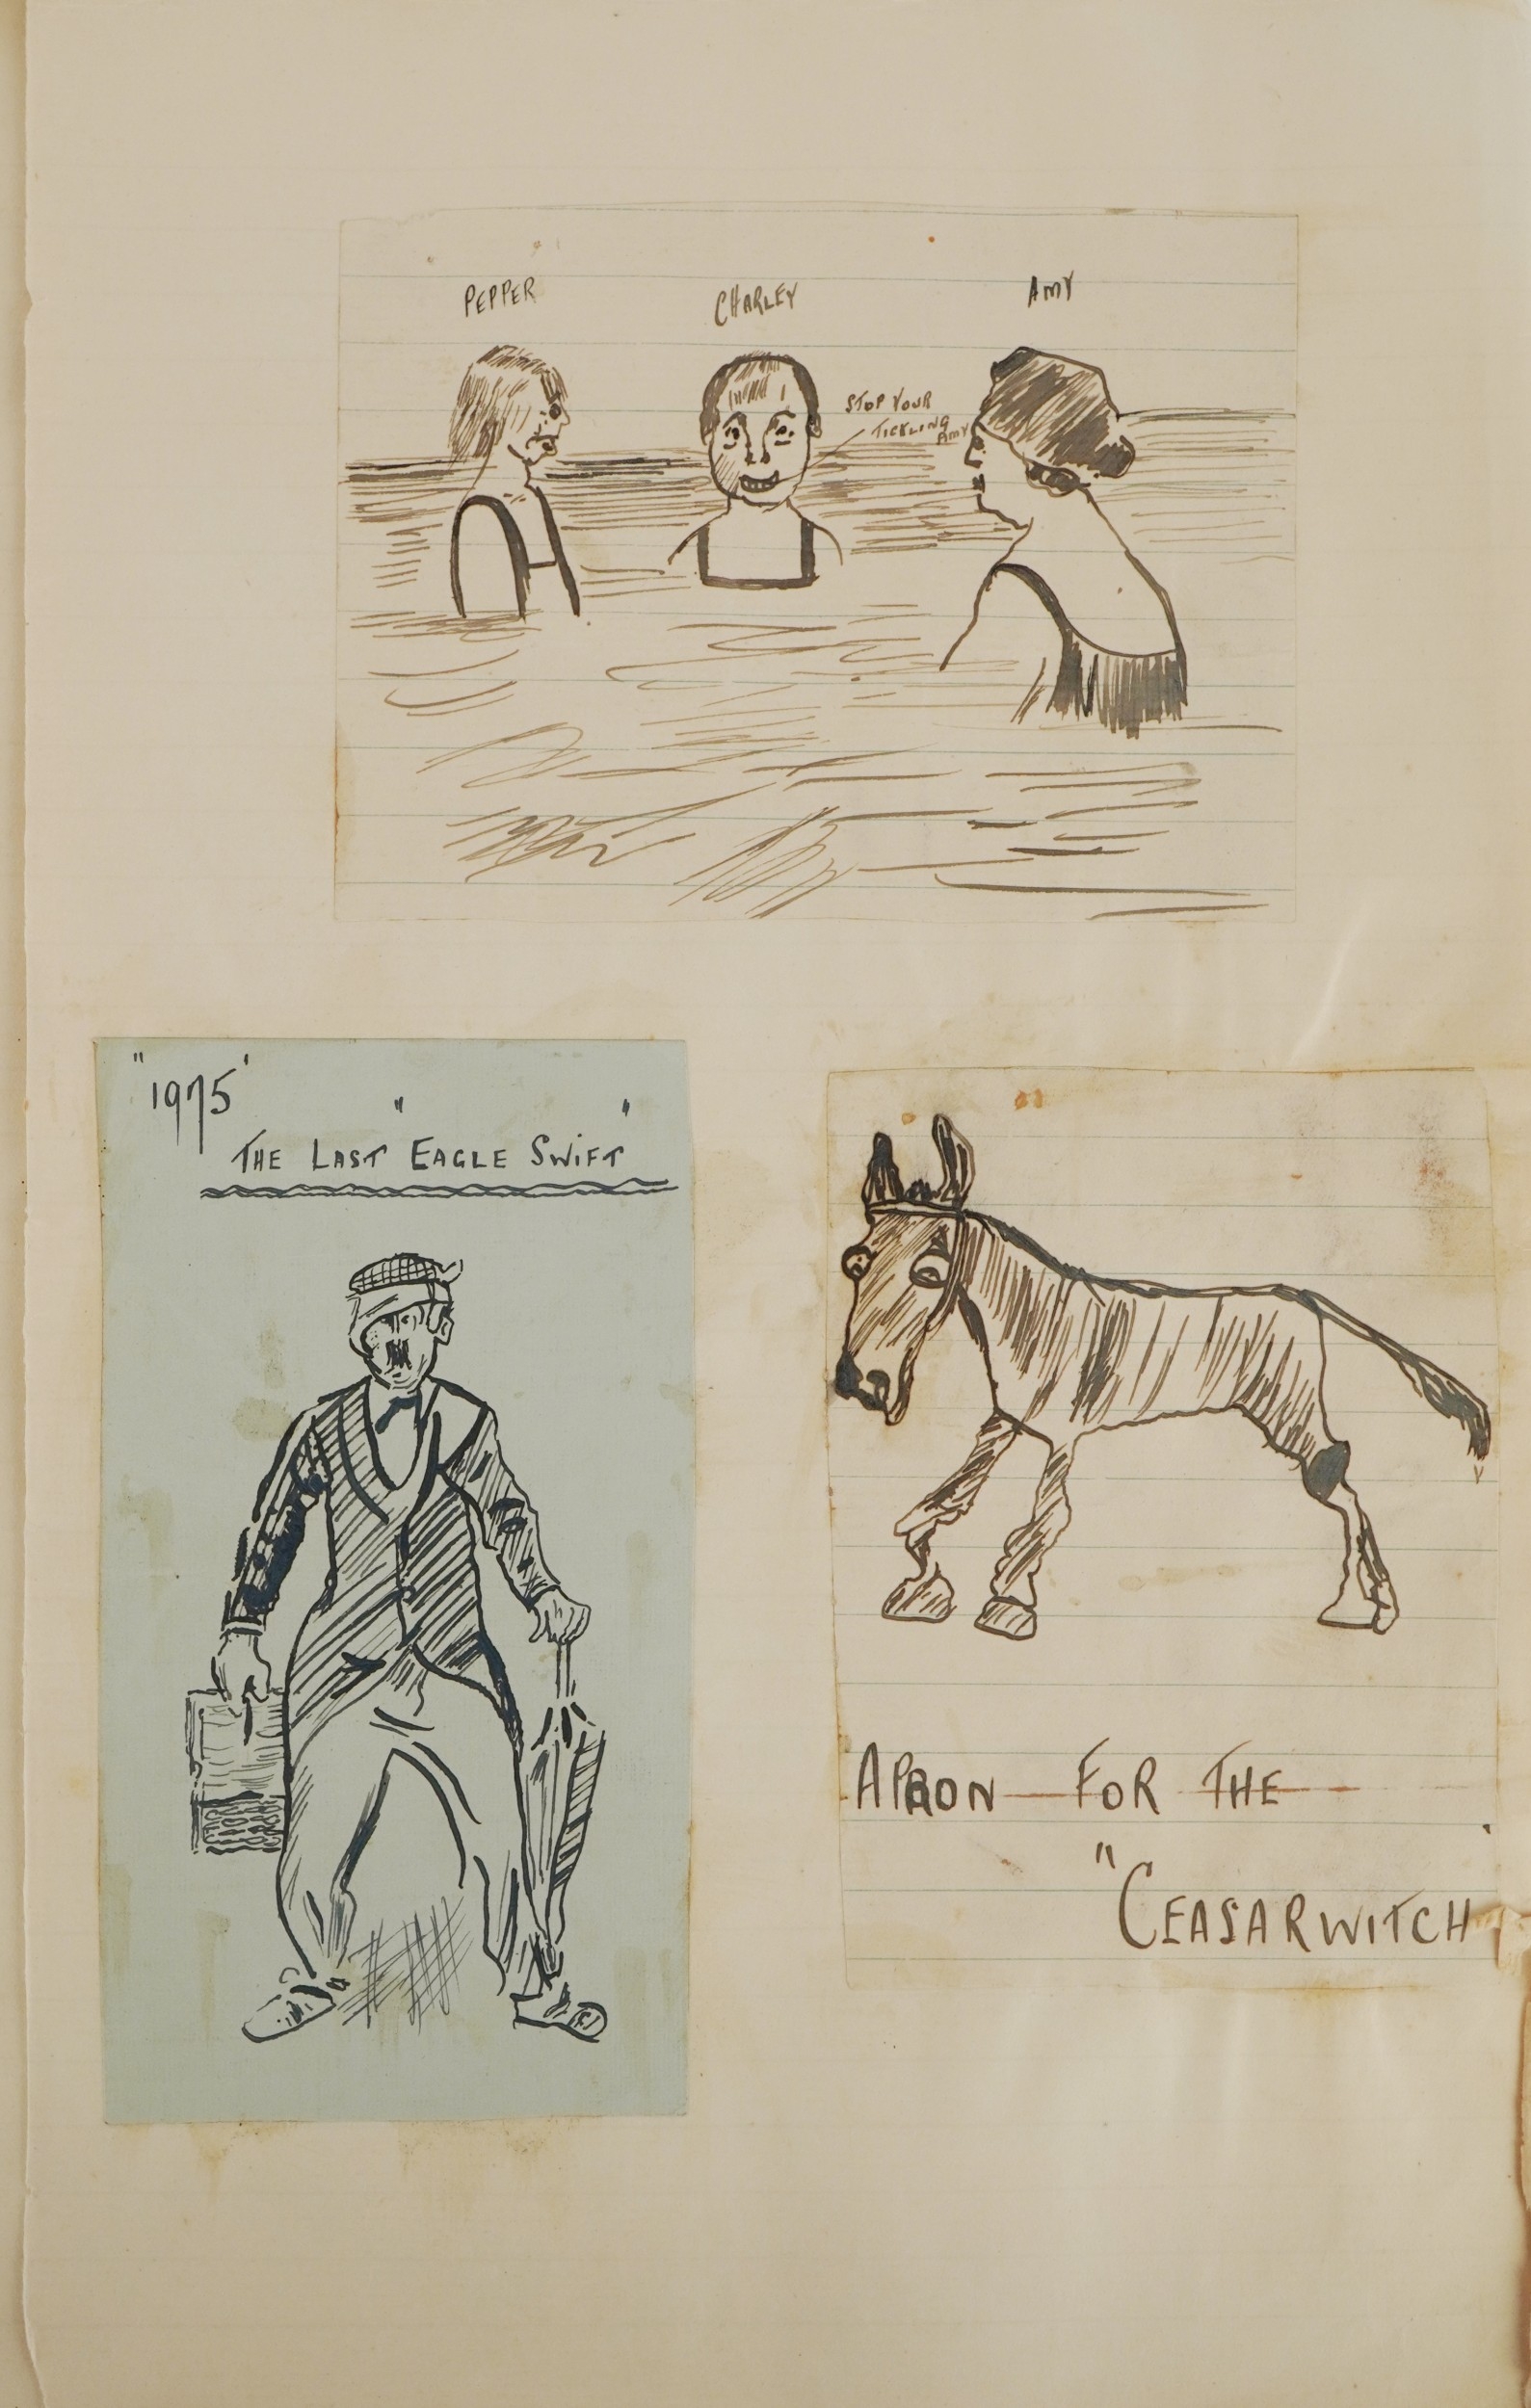 PEPPER
CHARLEY
AMY
STOP YOUR
TICKLING
AMY
"1975'
THE LAST "EAGLE SWIFT"
APRON FOR THE
"CEASARWITCH